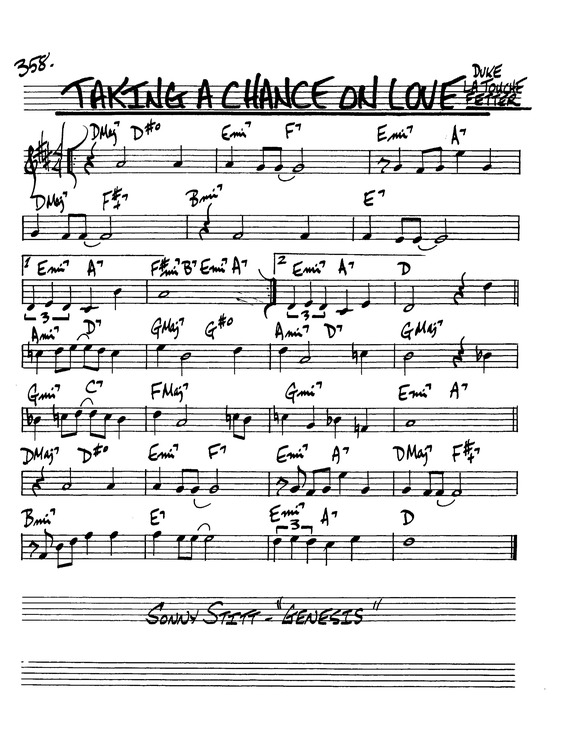 358.
TAKING A CHANCE ON LOVE
DUKE
LA TOUCHE
FETTER
DMaj7 D#o Emi7 F7 Emi7 A7
DMaj7 F#+7 Bmi7 E7
1 Emi7 A7 F#mi7 B7 Emi7 A7 2 Emi7 A7 D
3 3
Ami7 D7 GMaj7 G#o Ami7 D7 GMaj7
Gmi7 C7 FMaj7 Gmi7 Emi7 A7
DMaj7 D#o Emi7 F7 Emi7 A7 DMaj7 F#+7
Bmi7 E7 Emi7 A7 D
3
SONNY STITT - "GENESIS"